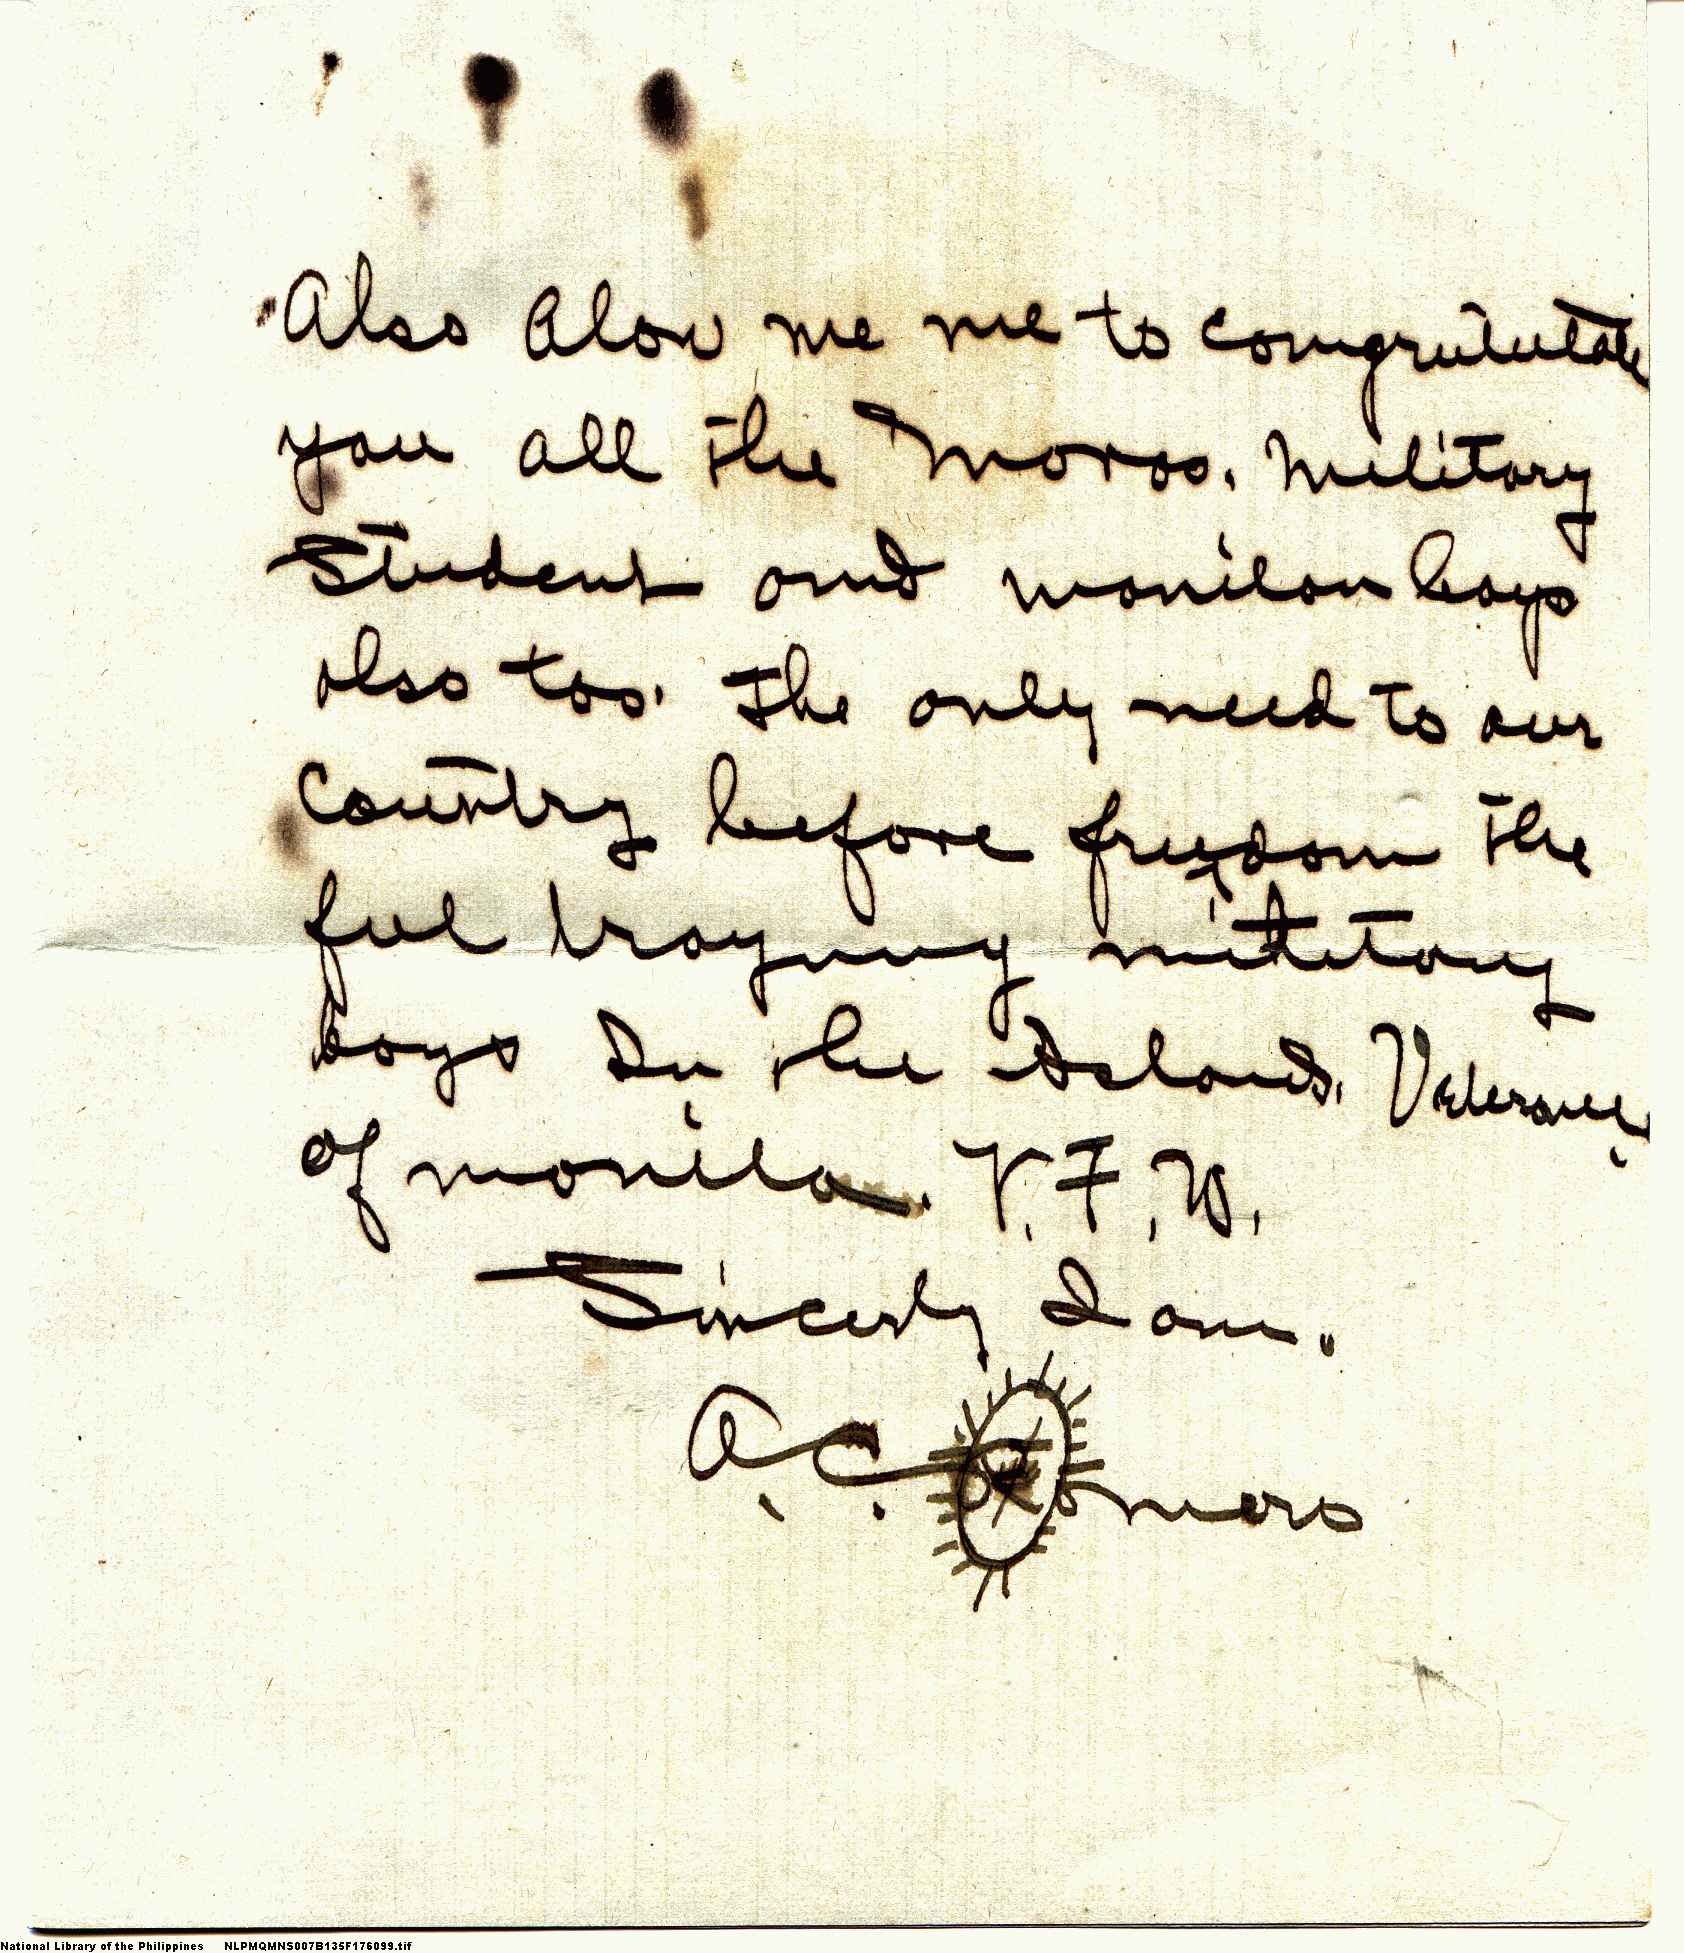 Also Alow me me to congrutulate
you all the Moros. Military
Student and manilan boys
also too. The only need to our
Country before freedom the
ful trayning military
boys In the Islands. Veterans
of manila. V. F. W.
Sincerly I am.
A. C. Romero
National Library of the Philippines NLPMQMNS007B135F176099.tif